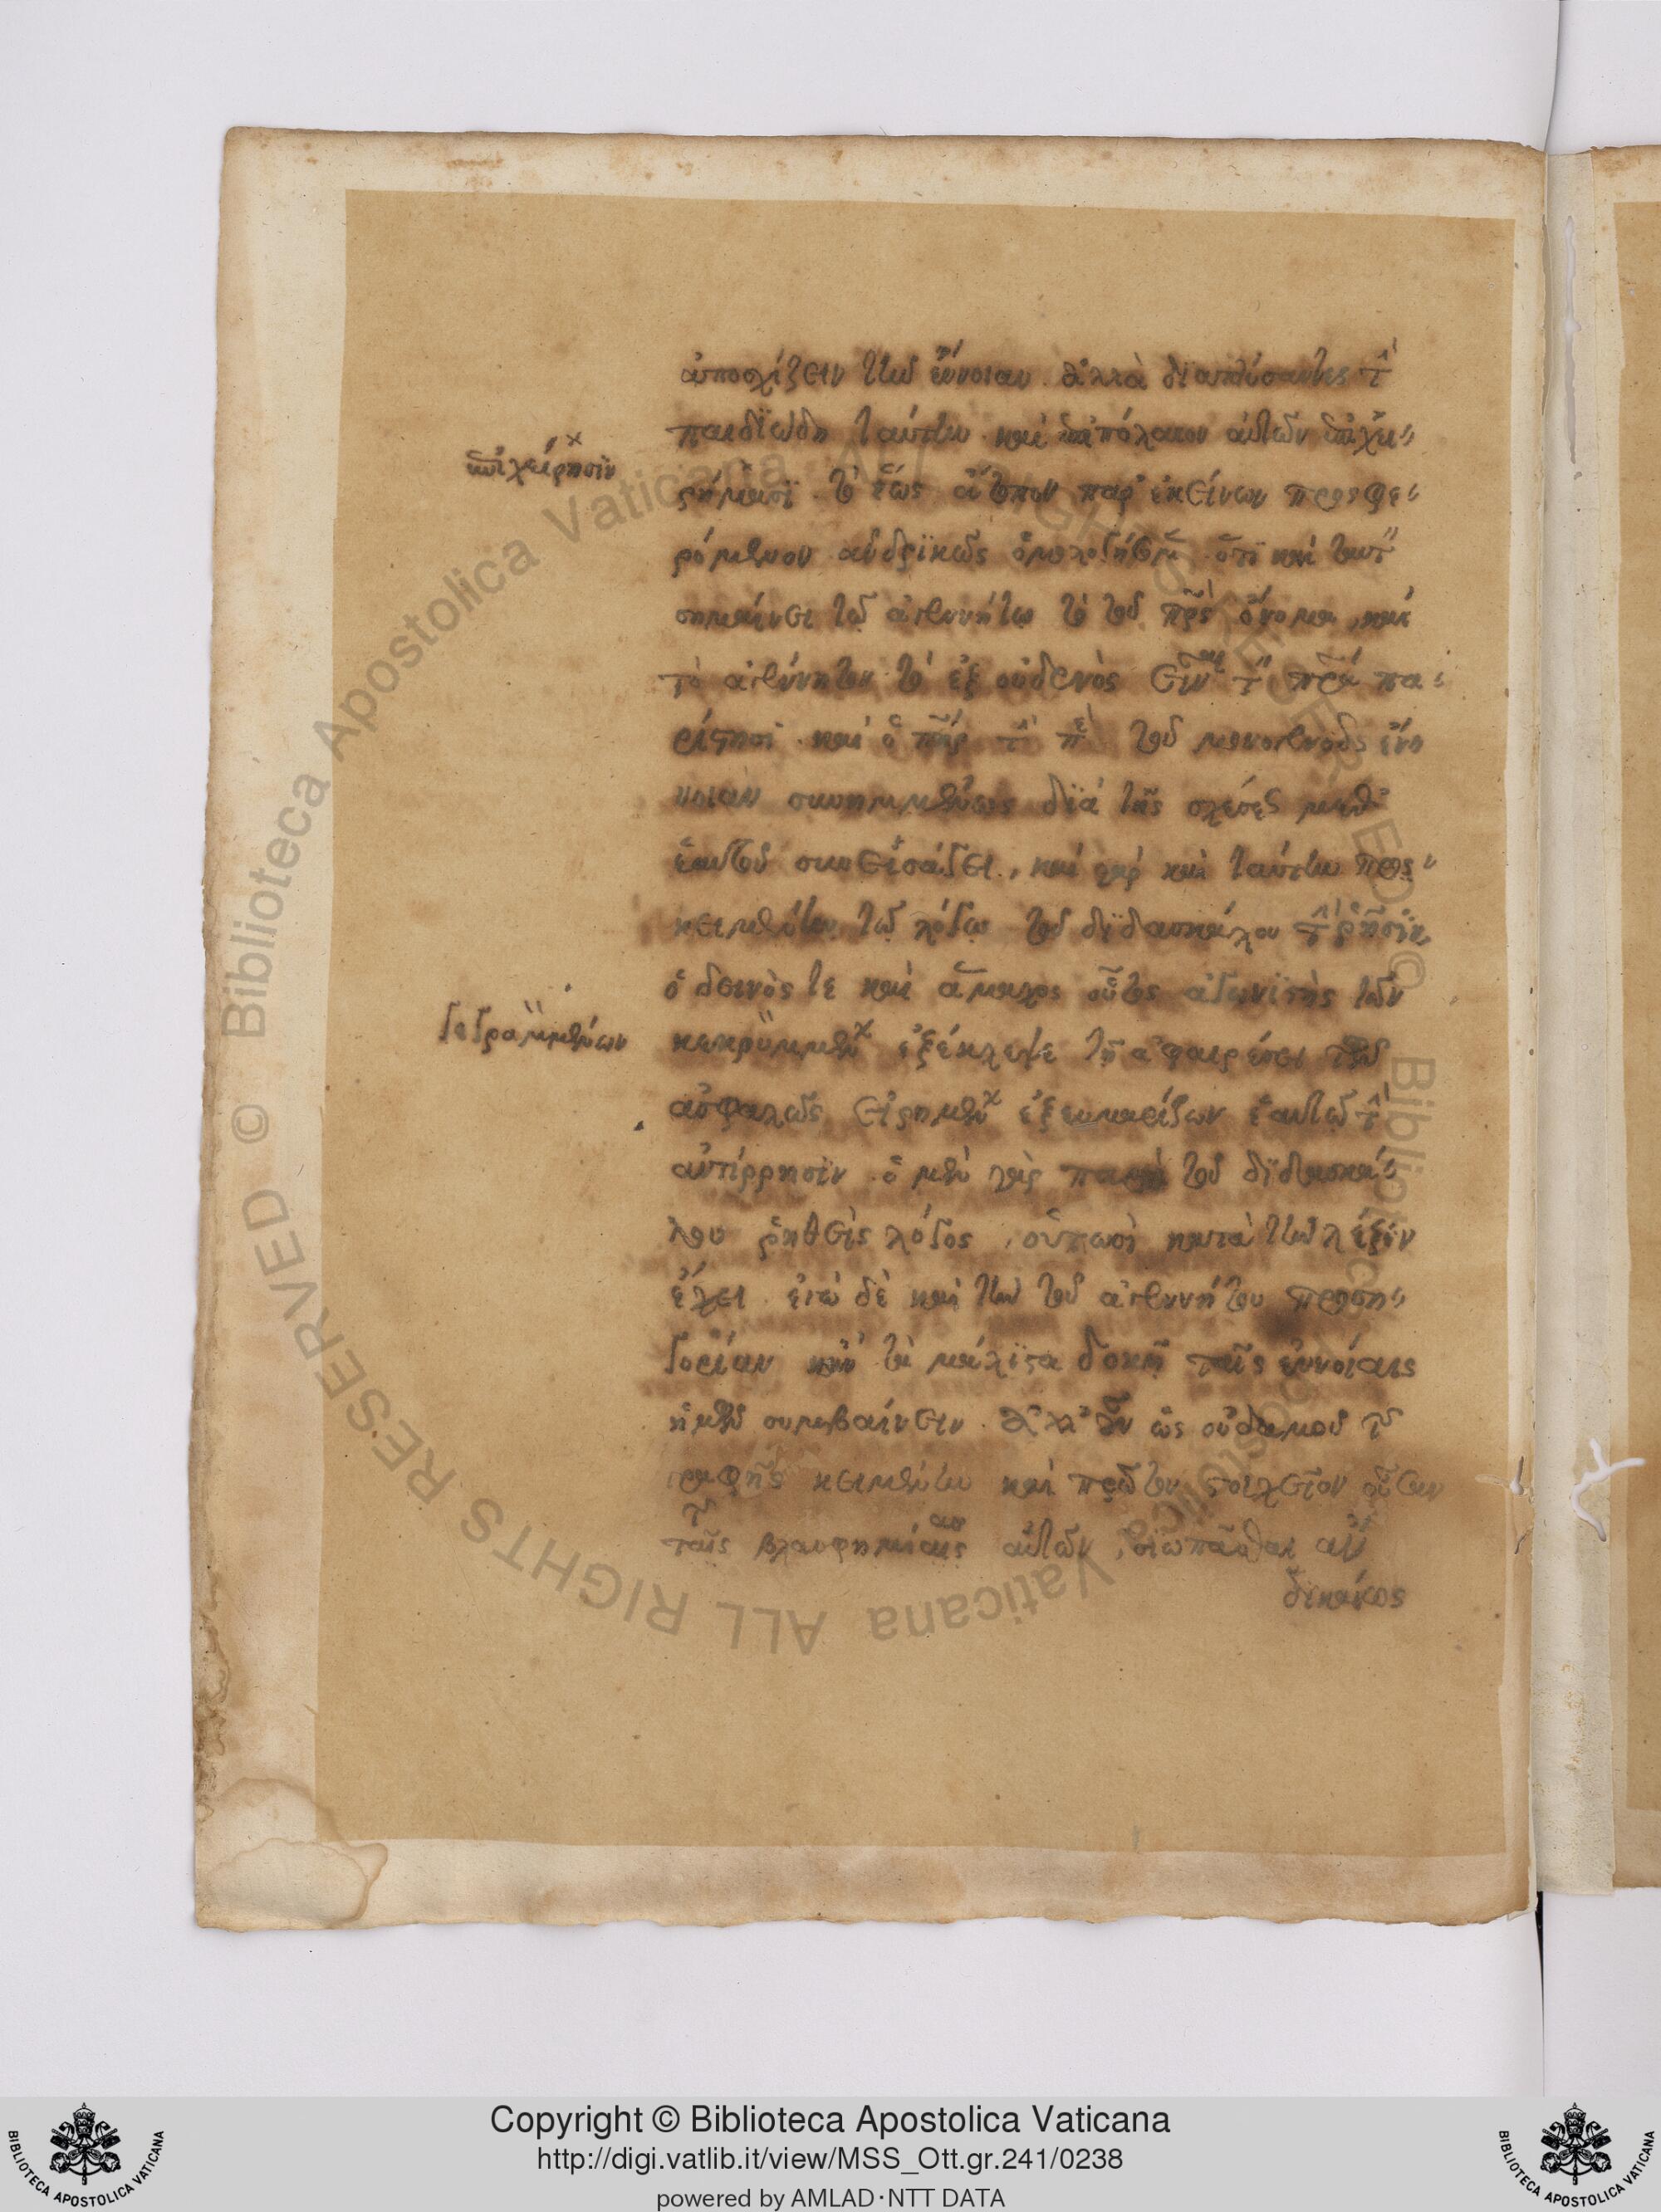 ἀποσχίζειν τὴν ἔννοιαν. ἀλλὰ διαπτύσαντες τὴν
παιδιώδη ταύτην καὶ ἀπόλαιον αὐτῶν ἐπιχει
ἐπιχείρησιν
ρήμασι. τὸ ἕως ἄτοπον παρ' ἐκείνων προσφε
ρόμενον ἀνδρικῶς ὁμολογήσωμεν. ὅτι καὶ ταυτὸν
σημαίνει τῷ ἀγεννήτῳ τὸ τοῦ πρς ὄνομα, καὶ
τὸ ἀγέννητον τὸ ἐξ οὐδενὸς εἶναι τὸν πρα πα
ρίστησι. καὶ ὁ πηρ τὴν περὶ τοῦ μονογενοῦς ἔν
νοιαν συνημμένως διὰ τῆς σχέσεως μεθ'
ἑαυτοῦ συνεισάγει, καὶ γὰρ καὶ ταύτην προς
κειμένην τῷ λόγῳ τοῦ διδασκάλου τὴν ῥῆσιν,
ὁ δεινός τε καὶ ἄμαχος οὗτος ἀγωνιστὴς τῶν
γεγραμμένων
κεκρυμμένων ἐξέκλεψε τῇ ἀφαιρέσει τῶν
ἀσφαλῶς εἰρημένων ἐξευμαρίζων ἑαυτῷ τὴν
ἀντίρρησιν. ὁ μὲν γὰρ παρὰ τοῦ διδασκά
λου ῥηθεὶς λόγος, οὑτωσὶ κατὰ τὴν λέξιν
ἔχει. ἐγὼ δὲ καὶ τὴν τοῦ ἀγεννήτου προση
γορίαν κἂν τὰ μάλιστα δοκῇ ταῖς ἐννοίαις
ἡμῶν συμβαίνειν. ἀλλ' οὖν ὡς οὐδαμοῦ τῆς
γραφῆς κειμένην καὶ πρῶτον στοιχεῖον οὖσαν
ταῖς βλασφημίαις αὐτῶν, σιωπᾶσθαι ἂν
δικαίως